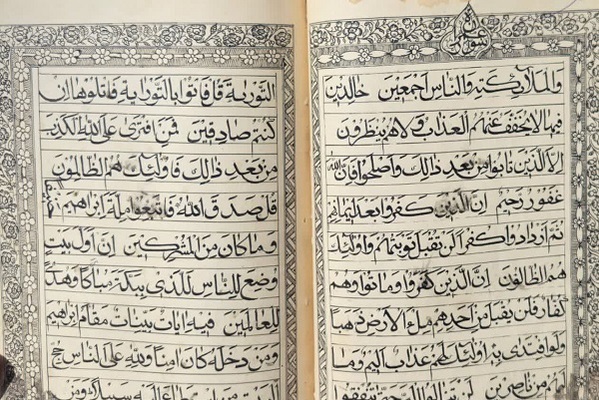 سورة آل عمران
والملائكته والناس اجمعين خالدين
فيها لا يخفف عنهم العذاب ولا هم ينظرون
الا الذين تابوا من بعد ذالك واصلحوا فان الله
غفور رحيم ان الذين كفروا بعد ايمانهم
ثم ازدادوا كفرا لن يقبل توبتهم واولئك
هم الظالون ان الذين كفروا وماتوا وهم
كفار فلن يقبل من احدهم ملء الارض ذهبا
ولو افتدى به اولئك لهم عذاب اليم وما
لهم من ناصرين لن تنالوا البر حتى تنفقوا
التورية قل فاتوا بالتوراية فاتلوها ان
كنتم صادقين فمن افترى على الله الكذب
من بعد ذالك فاولئك هم الظالمون
قل صدق الله فاتبعوا ملة ابراهيم
وما كان من المشركين ان اول بيت
وضع للناس للذى ببكة مباركا وهدى
للعالمين فيه ايات بينات مقام ابراهيم
ومن دخله كان امنا ولله على الناس حج
البيت من استطاع اليه سبيلا ومن